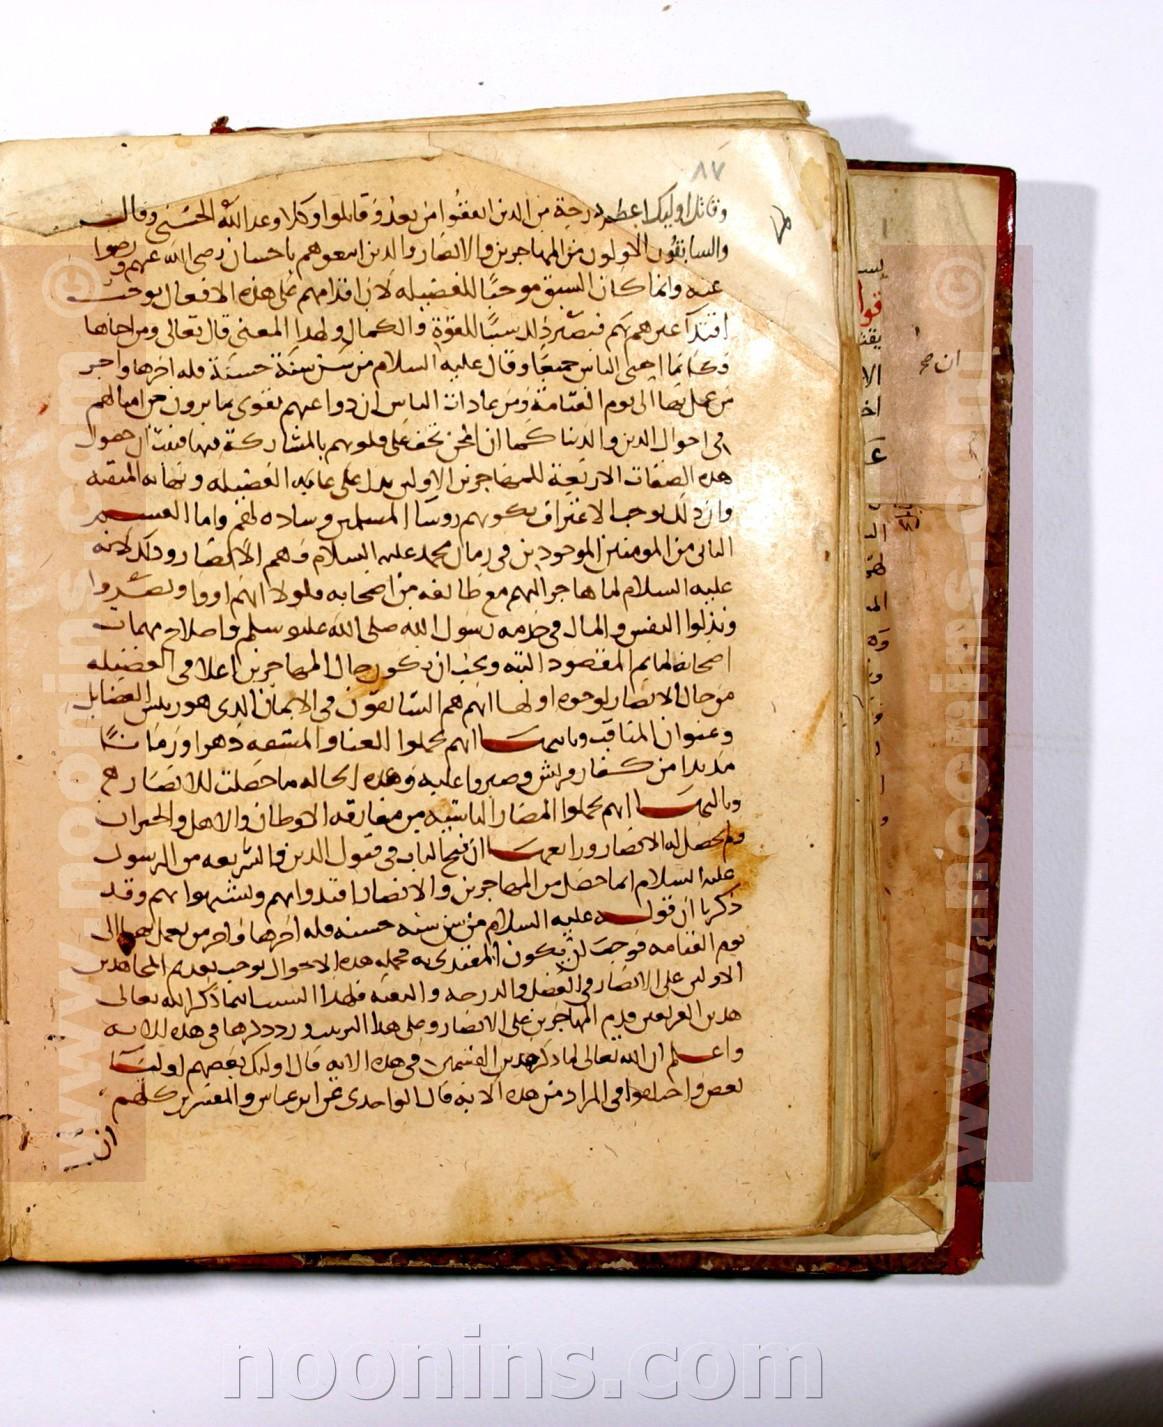 ٨٧
وقاتل اوليك اعظم درجة من الذين انفقوا من بعد وقاتلوا وكلا وعد الله الحسنى وقال
والسابقون الاولون من المهاجرين والانصار والذين اتبعوهم باحسان رضي الله عنهم ورضوا
عنه وانما كان السبق موجبا للفضيله لان اقدامهم على هذه الافعال يوجب
اقتدآ غيرهم بهم فيصير ذلك سببا للقوة والكمال ولهذا المعنى قال تعالى ومن احياها
فكانما احيى الناس جميعا وقال عليه السلام من سن سنة حسنة فله اجرها واجر
من عمل بها الى يوم القيامة ومن عادات الناس ان دواعيهم تقوى بما يرون من امثالهم
في احوال الدين والدنيا كما ان المحن تخف على قلوبهم بالمشاركة فيها فثبت ان حصول
هذه الصفات الاربعة للمهاجرين الاولين يدل على غاية الفضيله ونهاية المنقبه
وان ذلك يوجب الاعتراف بكونهم روسآ المسلمين وساده لهم واما القسم
الثاني من المومنين الموجودين في زمان محمد عليه السلام فهم الانصار وذلك لانه
عليه السلام لما هاجر اليهم مع طائفه من اصحابه فلولا انهم اووا ونصروا
وبذلوا النفس والمال في خدمه رسول الله صلى الله عليه وسلم واصلاح مهمات
اصحابه لما تم المقصود البته ويجب ان يكون حال المهاجرين اعلا في الفضيله
من حال الانصار لوجوه اولها انهم هم السابقون في الايمان الذى هو رييس الفضايل
وعنوان المناقب وثانيها انهم تحملوا العنا والمشقه دهرا وزمانا
مديدا من كفار قريش وصبروا عليه وهذه الحاله ما حصلت للانصار
وثالثها انهم تحملوا المضار الناشيه من مفارقه الاوطان والاهل والجيران
ولم يحصل له الانصار ورابعها ان فتح الباب في قبول الدين والشريعه من الرسول
عليه السلام انما حصل من المهاجرين والانصار اقتدوا بهم وتشبهوا بهم وقد
ذكرنا ان قوله عليه السلام من سن سنه حسنه فله اجرها واجر من يعمل بها الى
يوم القيامه فوجب ان يكون المقتدى به فجمله هذه الاحوال يوجب تقديم المجاهدين
الاولين على الانصار في الفضل والدرجه والمنقبه فلهذا السبب اينما ذكر الله تعالى
هذين الفريقين قدم المهاجرين على الانصار وعلى هذا الترتيب ورد ذكرهما في هذه الايه
واعلم ان الله تعالى لما ذكر هذين القسمين في هذه الايه قال اوليك بعضهم اوليآ
بعض واختلفوا في المراد من هذه الايه قال الواحدى عن ابن عباس والمفسرين كلهم
www.noonins.com ©
www.noonins.com ©
noonins.com